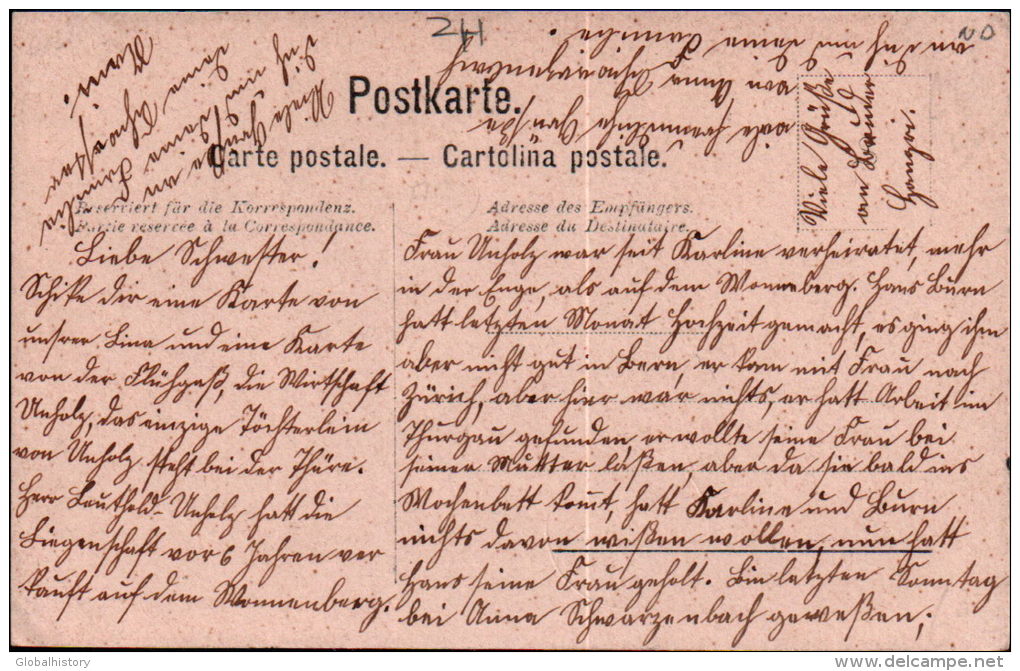 ZH
NO
Postkarte.
Carte postale. — Cartolina postale.
Reserviert für die Korrrespondenz.
Partie resercée à la Correspondance.
Adresse des Empfängers.
Adresse du Destinataire.
Liebe Schwester!
Schike dir eine Karte von
unsrer Lina und eine Karte
von der Flühgaß, die Wirtschaft
Unholz, das einzige Töchterlein
von Unholz, steht bei der Thüre.
Herr Leuthold-Unholz hatt die
Liegenschaft vor 6 Jahren ver
kauft auf dem Wonnenberg.
Frau Unholz war seit Karline verheiratet, mehr
in der Enge, als auf dem Wonneberg. Hans Burn
hatt letzten Monat Hochzeit gemacht, es ging ihm
aber nicht gut in Bern, er kam mit Frau nach
Zürich, aber hier war nichts, er hatt Arbeit im
Thurgau gefunden er wollte seine Frau bei
seiner Mutter laßen, aber da sie bald ins
Wochenbett komt, hatt Karline und Burn
nichts davon wißen wollen, nun hatt
Hans seine Frau geholt. Bin letzten Sonntag
bei Anna Schwarzenbach geweßen;
Viele Grüße
an
von Anna Schwarzenbach
an dich und deine Familie.
Viele Grüße an
dich und deine Familie
deine Schwester